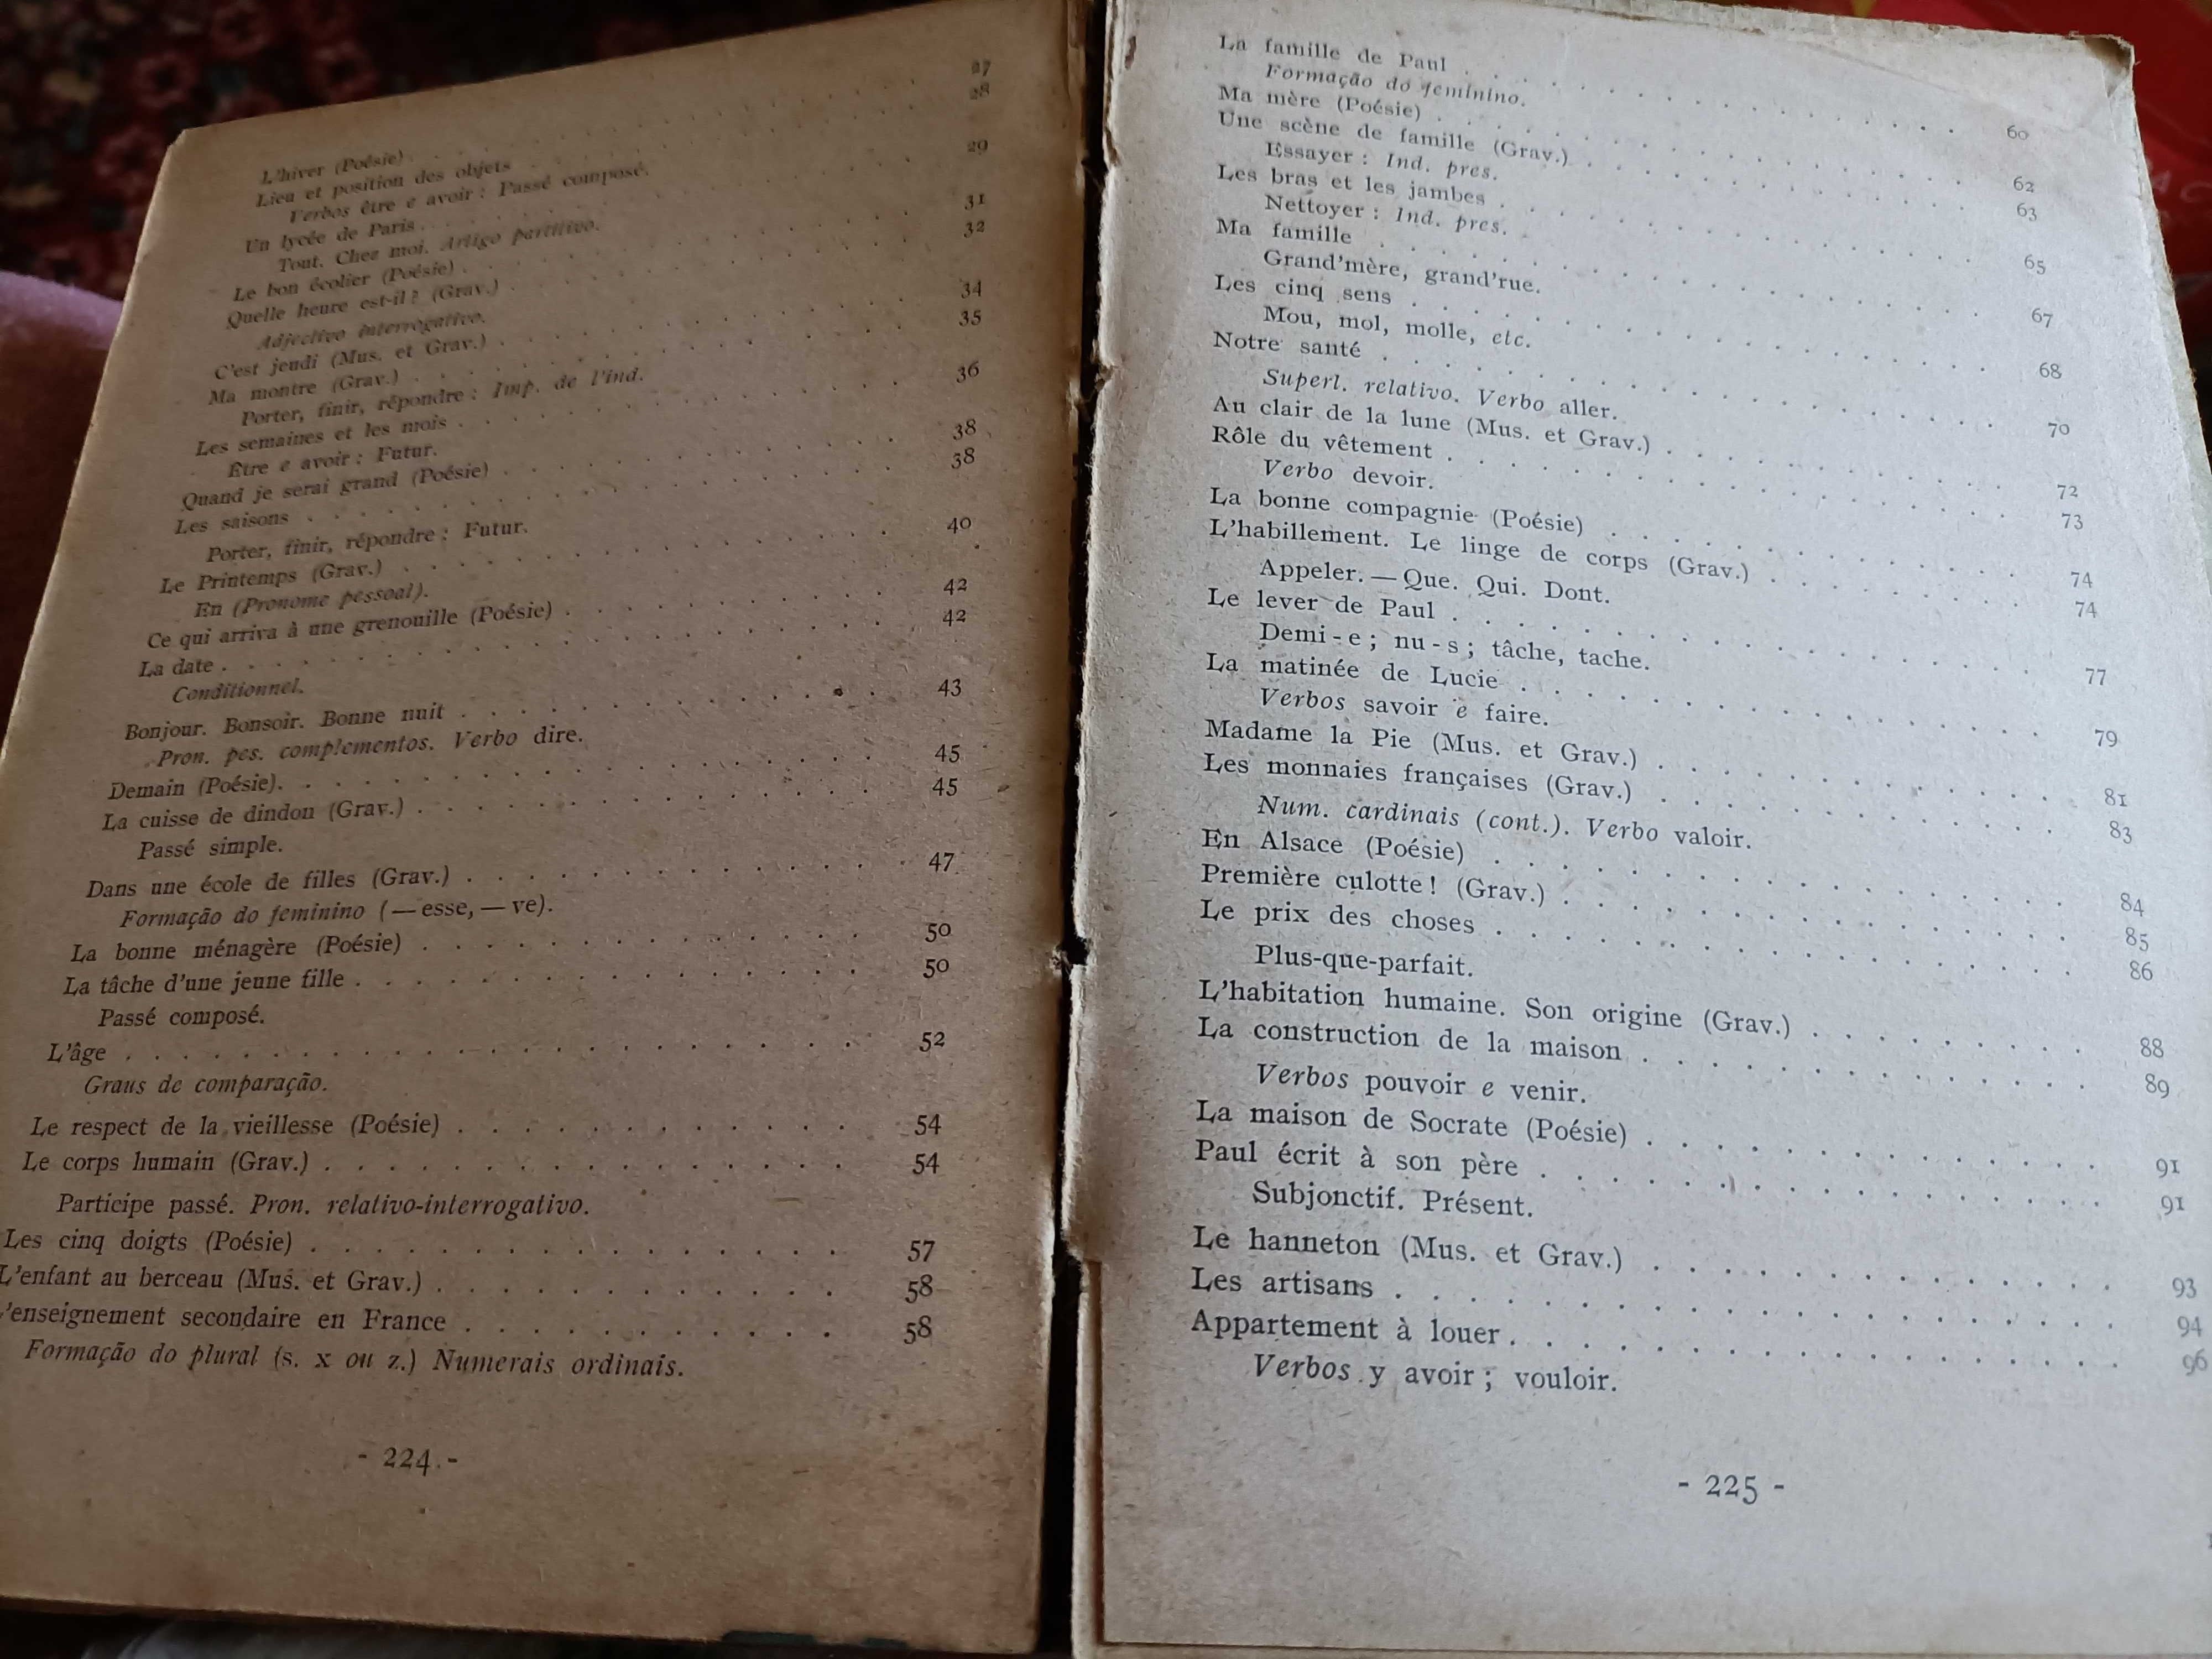 L'hiver (Poésie) . . . 27
Lieu et position des objets . . . 28
Verbos être e avoir : Passé composé.
Un lycée de Paris . . . 29
Tout. Chez moi. Artigo partitivo.
Le bon écolier (Poésie) . . . 31
Quelle heure est-il ? (Grav.) . . . 32
Adjectivo interrogativo.
C'est jeudi (Mus. et Grav.) . . . 34
Ma montre (Grav.) . . . 35
Porter, finir, répondre : Imp. de l'ind.
Les semaines et les mois . . . 36
Être e avoir : Futur.
Quand je serai grand (Poésie) . . . 38
Les saisons . . . 38
Porter, finir, répondre : Futur.
Le Printemps (Grav.) . . . 40
En (Pronome pessoal).
Ce qui arriva à une grenouille (Poésie) . . . 42
La date . . . 42
Conditionnel.
Bonjour. Bonsoir. Bonne nuit . . . 43
Pron. pes. complementos. Verbo dire.
Demain (Poésie). . . . 45
La cuisse de dindon (Grav.) . . . 45
Passé simple.
Dans une école de filles (Grav.) . . . 47
Formação do feminino (— esse, — ve).
La bonne ménagère (Poésie) . . . 50
La tâche d'une jeune fille . . . 50
Passé composé.
L'âge . . . 52
Graus de comparação.
Le respect de la vieillesse (Poésie) . . . 54
Le corps humain (Grav.) . . . 54
Participe passé. Pron. relativo-interrogativo.
Les cinq doigts (Poésie) . . . 57
L'enfant au berceau (Mus. et Grav.) . . . 58
'enseignement secondaire en France . . . 58
Formação do plural (s. x ou z.) Numerais ordinais.
- 224 -
La famille de Paul . . . 60
Formação do feminino.
Ma mère (Poésie) . . . 62
Une scène de famille (Grav.) . . . 63
Essayer : Ind. pres.
Les bras et les jambes . . . 65
Nettoyer : Ind. pres.
Ma famille . . . 67
Grand'mère, grand'rue.
Les cinq sens . . . 68
Mou, mol, molle, etc.
Notre santé . . . 70
Superl. relativo. Verbo aller.
Au clair de la lune (Mus. et Grav.) . . . 72
Rôle du vêtement . . . 73
Verbo devoir.
La bonne compagnie (Poésie) . . . 74
L'habillement. Le linge de corps (Grav.) . . . 74
Appeler. — Que. Qui. Dont.
Le lever de Paul . . . 77
Demi - e ; nu - s ; tâche, tache.
La matinée de Lucie . . . 79
Verbos savoir e faire.
Madame la Pie (Mus. et Grav.) . . . 81
Les monnaies françaises (Grav.) . . . 83
Num. cardinais (cont.). Verbo valoir.
En Alsace (Poésie) . . . 84
Première culotte ! (Grav.) . . . 85
Le prix des choses . . . 86
Plus-que-parfait.
L'habitation humaine. Son origine (Grav.) . . . 88
La construction de la maison . . . 89
Verbos pouvoir e venir.
La maison de Socrate (Poésie) . . . 91
Paul écrit à son père . . . 91
Subjonctif. Présent.
Le hanneton (Mus. et Grav.) . . . 93
Les artisans . . . 94
Appartement à louer . . . 96
Verbos y avoir ; vouloir.
- 225 -